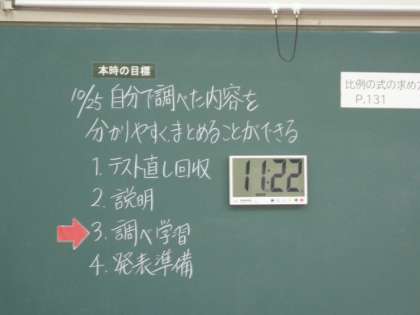 本時の目標
10/25 自分で調べた内容を
分かりやすくまとめることができる
1. テスト直し回収
2. 説明
3. 調べ学習
4. 発表準備
11:22
比例の式の求め方
P.131